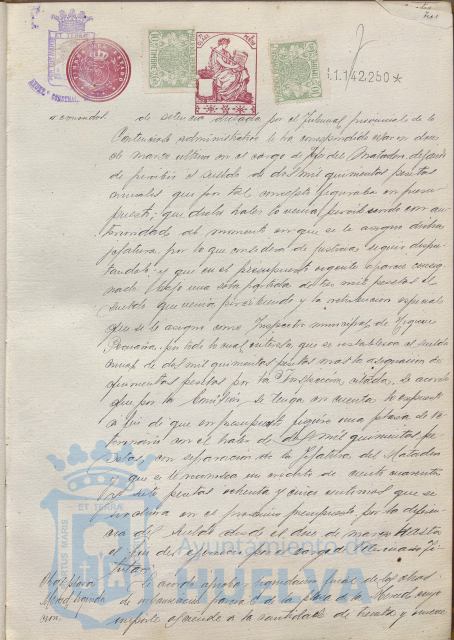 PORTUS MARIS ET TERRÆ CUSTODIA
1.142.250*
de sentencia dictada por el Tribunal provincial de lo
Contencioso administrativo le ha correspondido cesar en doce
de marzo último en el cargo de Jefe del Matadero, dejando
de percibir el sueldo de dos mil quinientas pesetas
anuales que por tal concepto figuraba en presu-
puesto; que dicho haber lo venia percibiendo con an-
terioridad al momento en que se le asignó dicha
jefatura por lo que considera de justicia seguir disfru-
tandolo; y que en el presupuesto vigente aparece consig-
nado bajo una sola partida de tres mil pesetas el
sueldo que venia percibiendo y la retribucion especial
que se le asignó como Inspector municipal de Higiene
Pecuaria, por todo lo cual interesa que se restablezca el sueldo
anual de dos mil quinientas pesetas mas la asignacion de
quinientas pesetas por la Inspeccion citada, Se acordó
que por la Comision se tenga en cuenta lo expuesto
a fin de que en presupuesto figure una plaza de Ve-
terinario con el haber de dos mil quinientas pe-
setas, con separacion de la Jefatura del Matadero
y que se le reconozca un crédito de ciento cuarenta
y siete pesetas ochenta y cinco centimos que se
incluira en el proximo presupuesto por la diferen-
cia del sueldo desde el doce de marzo hasta
el fin del ejercicio por el cargo de Veterinario Ti-
tular.
Se acordó aprobar la liquidacion final de las obras
de urbanizacion parcial de la plaza de la Merced cuyo
importe asciende a la cantidad de treinta y nueve
Ayuntamiento de
HUELVA